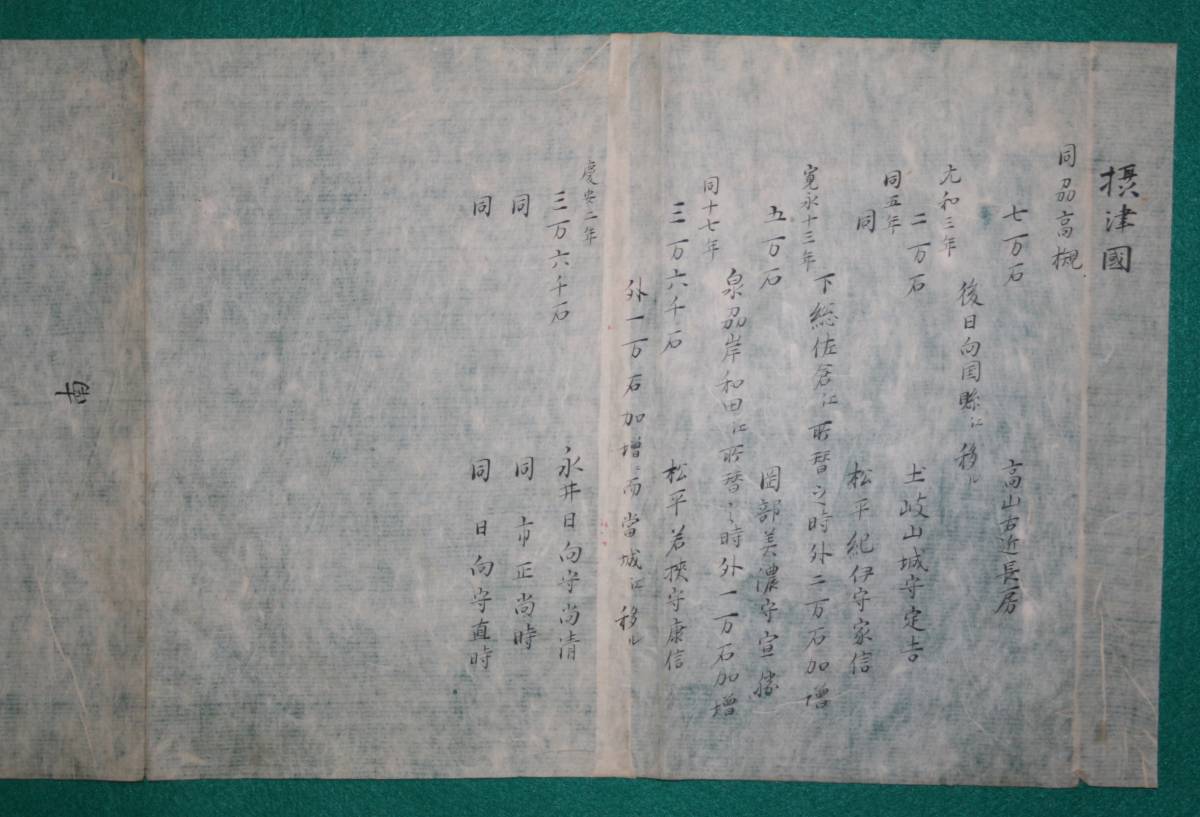 摂津國
同刕高槻
七万石 高山右近長房
後日向国縣江移ル
元和三年
二万石 土岐山城守定吉
同五年
同 松平紀伊守家信
下総佐倉江所替之時外二万石加増
寛永十三年
五万石 岡部美濃守宣勝
泉刕岸和田江所替之時外一万石加増
同十七年
三万六千石 松平若狭守康信
外一万石加増ニ而當城江移ル
慶安二年
三万六千石 永井日向守尚清
同 同 市正尚時
同 同 日向守直時
南